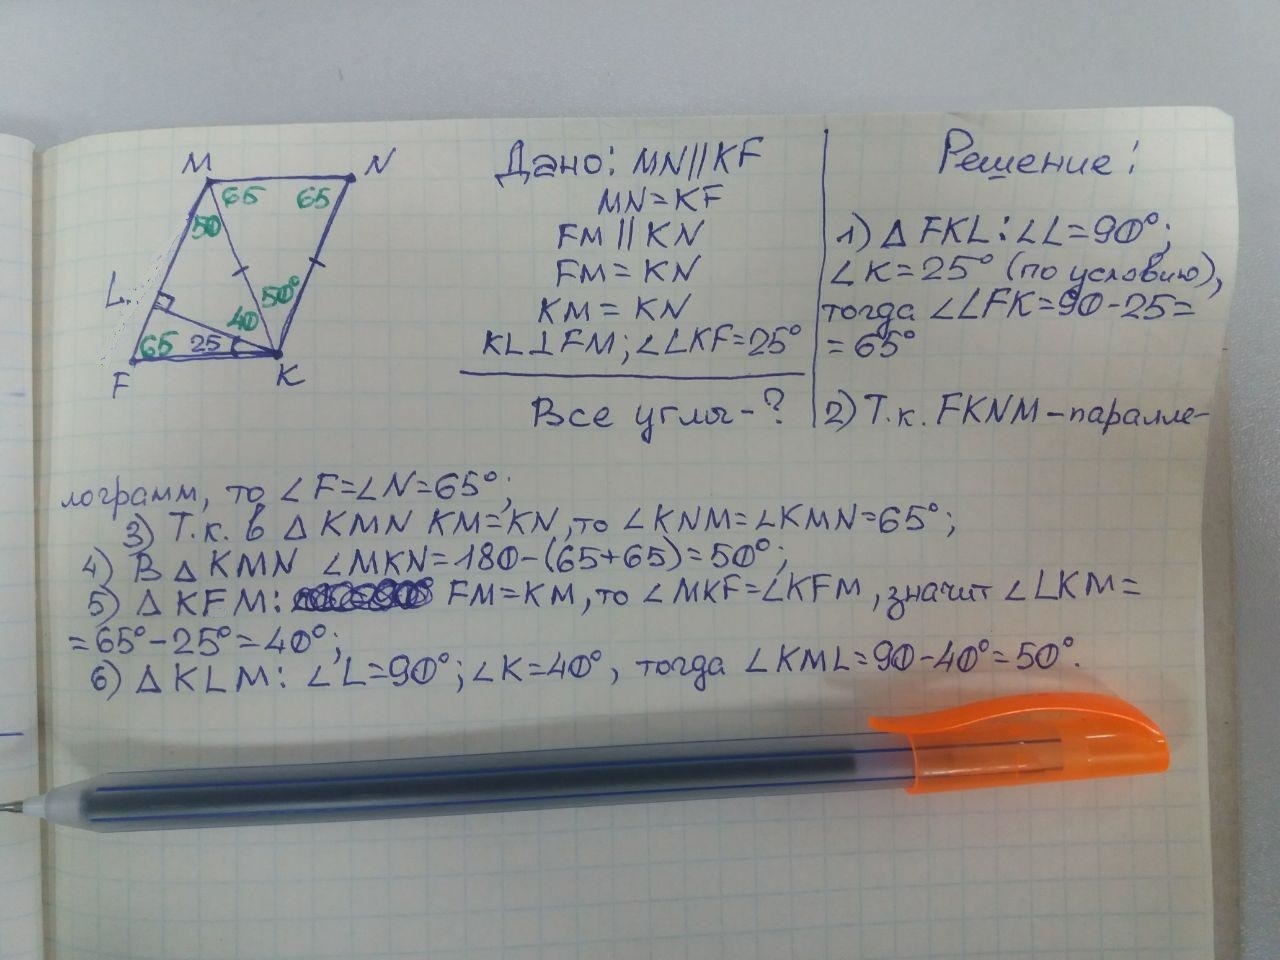 M N
65 65
50
L
50°
40
65 25
F K
Дано: MN||KF
MN=KF
FM||KN
FM=KN
KM=KN
KL⊥FM; ∠LKF=25°
Все углы-?
Решение:
1) △FKL: ∠L=90°;
∠K=25° (по условию),
тогда ∠LFK=90-25=
=65°
2) Т.к. FKNM-паралле-
лограмм, то ∠F=∠N=65°;
3) Т.к. в △KMN KM=KN, то ∠KNM=∠KMN=65°;
4) В △KMN ∠MKN=180-(65+65)=50°;
5) △KFM: FM=KM, то ∠MKF=∠KFM, значит ∠LKM=
=65°-25°=40°;
6) △KLM: ∠L=90°; ∠K=40°, тогда ∠KML=90-40°=50°.